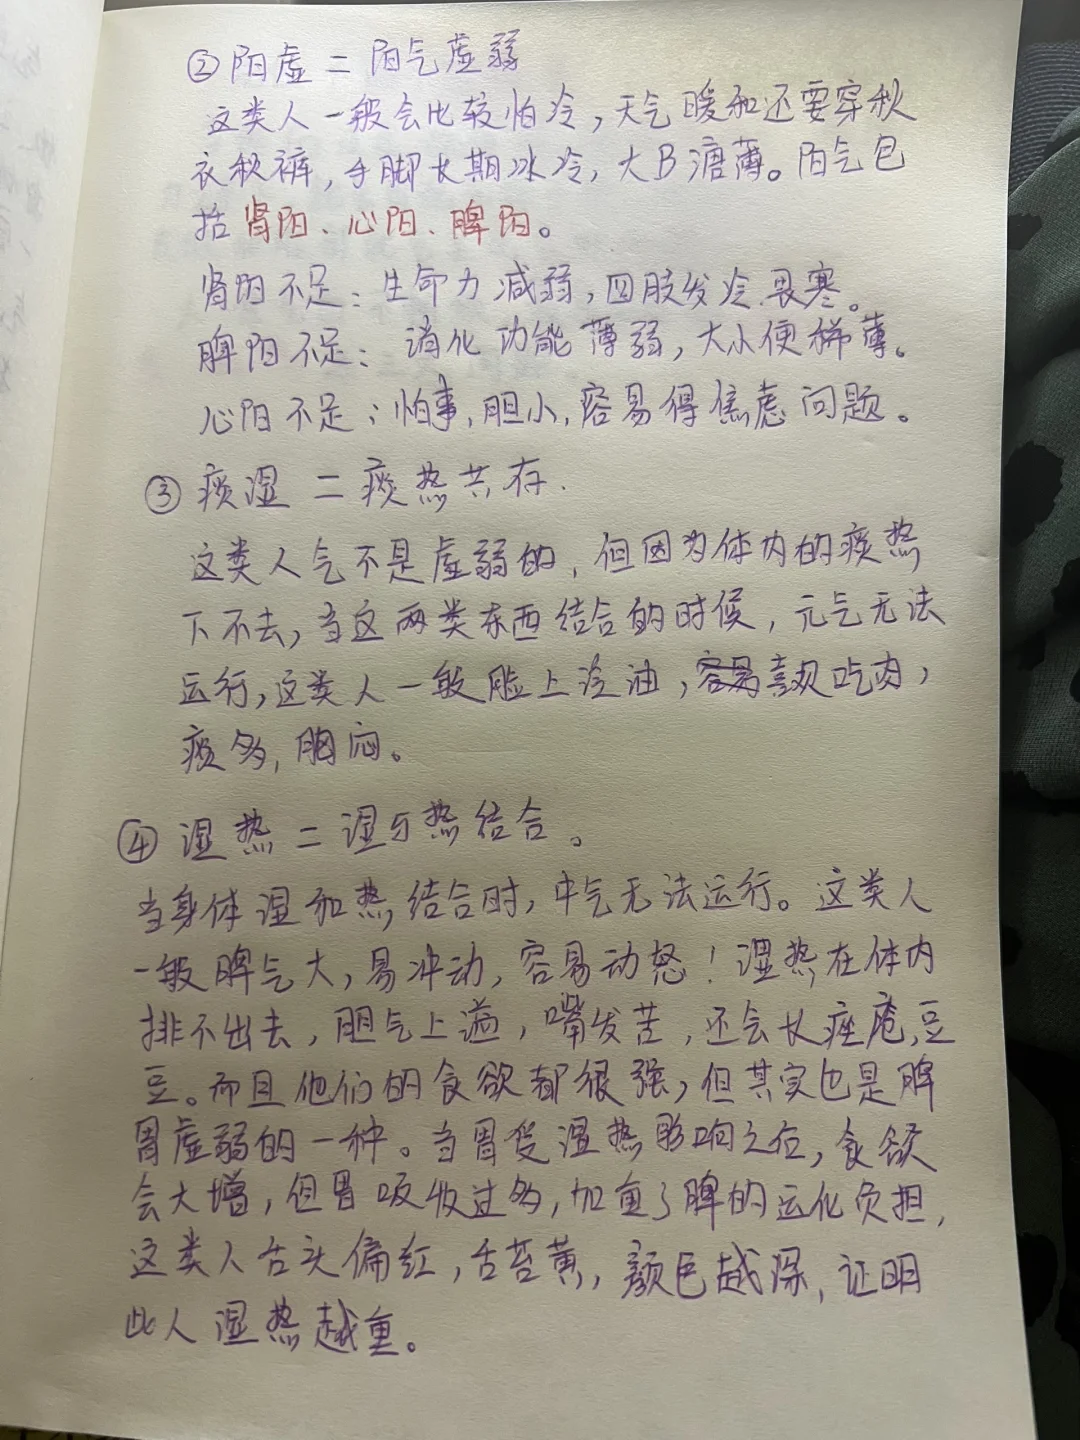 ②阳虚＝阳气虚弱
这类人一般会比较怕冷,天气暖和还要穿秋
衣秋裤,手脚长期冰冷,大B溏薄。阳气包
括肾阳、心阳、脾阳。
肾阳不足:生命力减弱,四肢发冷畏寒。
脾阳不足:消化功能薄弱,大小便稀薄。
心阳不足:怕事,胆小,容易得焦虑问题。
③痰湿＝痰热共存.
这类人气不是虚弱的,但因为体内的痰热
下不去,当这两类东西结合的时候,元气无法
运行,这类人一般脸上冷油,喜欢吃肉,
痰多,胸闷。
④湿热＝湿与热结合。
当身体湿和热结合时,中气无法运行。这类人
一般脾气大,易冲动,容易动怒!湿热在体内
排不出去,胆气上逆,嘴发苦,还会长痤疮,豆
豆。而且他们的食欲都很强,但其实也是脾
胃虚弱的一种。当胃受湿热影响之后,食欲
会大增,但胃吸收过多,加重了脾的运化负担,
这类人舌头偏红,舌苔黄,颜色越深,证明
此人湿热越重。